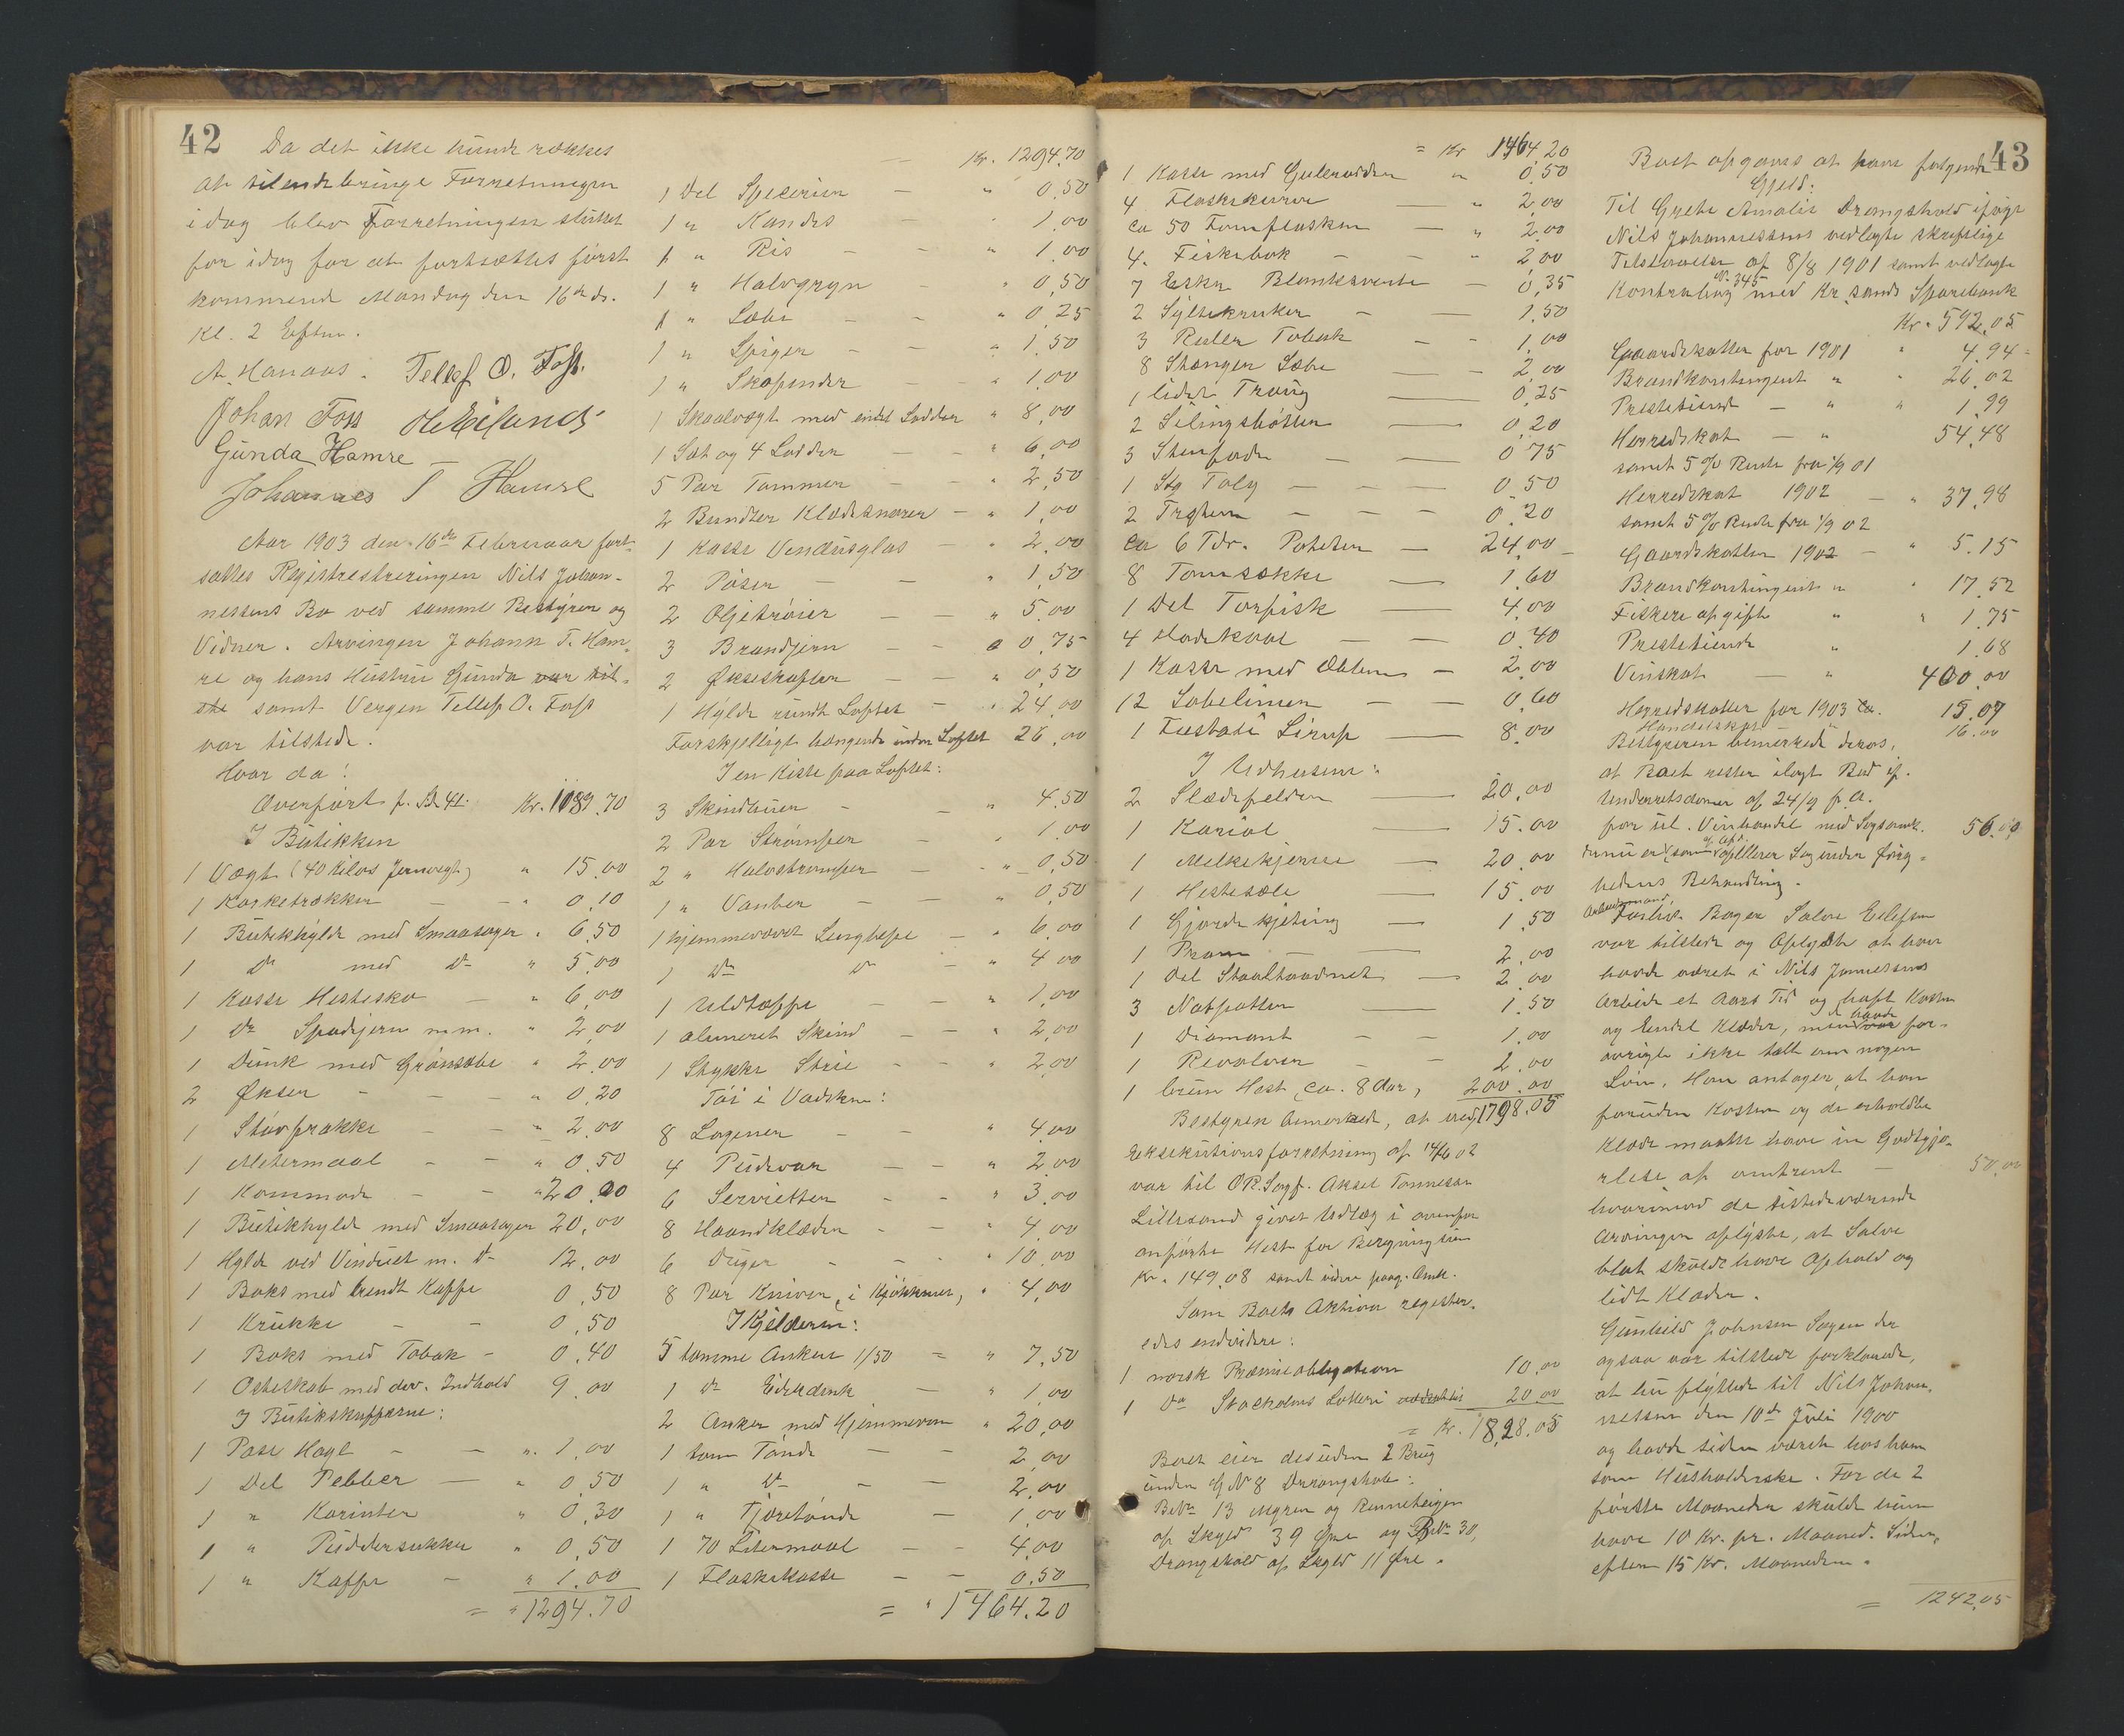 42
Da det ikke kunde rækkes
at tilendebringe Forretningen
idag blev Forretningen sluttet
for idag for at fortsættes først
kommende Mandag den 16de ds.
Kl. 2 Efterm.
A. Hanaas. Tellef O. Foss.
Johan Foss
Gunda Hamre
Johannes T Hamre
Aar 1903 den 16de Februar fort-
sattes Registreringen Nils Johan-
nessens Bo ved samme Bestyrer og
Vidner. Arvingen Johann T. Ham-
re og hans Hustru Gunda var til-
ste samt Vergen Tellef O. Foss
var tilstede.
Hvor da!
Overført f. S. 41. Kr. 1189.70
I Butikken
1 Vægt (40 Kilos Jernvægt) " 15.00
1 Korketrækker - " 0.10
1 Butikhylde med Smaasager " 6.50
1 do med do " 5.00
1 Kasse Hestesko - " 6.00
1 do Spadejern m.m. " 2.00
1 Dunk med Grønsæbe " 2.00
2 Økser - " 0.20
1 Støvfrakke - " 2.00
1 Metermaal - " 0.50
1 Kommode - " 20.00
1 Butikhylde med Smaasager 20.00
1 Hylde ved Vinduet m. do 12.00
1 Boks med brendt Kaffe 0.50
1 Krukke - 0.50
1 Boks med Tobak - 0.40
1 Osteskab med div. Indhold 9.00
I Butikskufferne:
1 Pose Hagl - " 1.00
1 Del Pebber - " 0.50
1 " Korinter " 0.30
1 " Puddersukker " 0.50
1 " Kaffe - " 1.00
= " 1294.70
Kr. 1294.70
1 Del Specerier - " 0.50
1 " Kandis - " 1.00
1 " Ris - " 1.00
1 " Havregryn - " 0.50
1 " Sæbe - " 0.25
1 " Spiger - " 1.50
1 " Skopinder - " 1.00
1 Skaalvægt med endel Lodder " 8.00
1 Sæt og 4 Lodder - " 6.00
5 Par Tømmer - " 2.50
2 Bundter Klædesnorer - " 1.00
1 Kasse Vindusglas - " 2.00
2 Poser - " 1.50
2 Oljetrøier - " 5.00
3 Brandjern - " 0.75
2 Økseskafter - " 0.50
1 Hylde rundt Loftet - " 24.00
Forskjelligt hængende under Loftet 26.00
I en Kiste paa Loftet:
3 Skindluer - " 4.50
2 Par Strømper - " 1.00
2 " Halvstrømper - " 0.50
1 " Vanter - " 0.50
1 hjemmevævet Sengteppe - " 6.00
1 do do - " 4.00
1 Uldtæppe - " 1.00
1 aluneret Skind - " 2.00
1 Stykke Strie - " 2.00
Tøi i Vadsken:
8 Lagener - " 4.00
4 Pudevar - " 2.00
6 Servietter - " 3.00
8 Haandklæder - " 4.00
6 Duger - " 10.00
8 Par Kniver, i Kjøkkenet, " 4.00
I Kjelderen:
5 tomme Anker 1/50 = " 7.50
1 do Edikdunk - " 1.00
2 Anker med Hjemmevin " 20.00
1 tom Tønde - 2.00
1 " do - 2.00
1 " Tjæretønde - 1.00
1 70 Litermaal - 4.00
1 Flaskekasse - 0.50
= " 1464.20
= Kr 1464.20
1 Kasse med Gulerødder " 0.50
4 Flaskekurve - " 2.00
ca 50 Tomflasker - " 2.00
4. Fiskebak - " 2.00
7 Esker Blanksværte - 0.35
2 Syltekrukker - 1.50
3 Ruler Tobak - 1.00
8 Stænger Sæbe - 2.00
1 lidet Traug - 0.25
2 Silingsbøtter - 0.20
3 Stenfade - 0.75
1 Stg Talg - 0.50
2 - 0.20
ca 6 Tdr. Poteter - 24.00
8 Tomsække - 1.60
1 Del Tørfisk - 4.00
4 Hodekaal - 0.40
1 Kasse med Æbler - 2.00
12 - 0.60
1 Fustasi Sirup - 8.00
I Udhusene:
2 Slædefelder - 20.00
1 Kariol - 15.00
1 Melkekjerre - 20.00
1 Hestesæle - 15.00
1 Gjordekjeting - 1.50
1 Pram - 2.00
1 Del Staaltraadnet - 2.00
3 Natpotter - 1.50
1 Diamant - 1.00
1 Revolver - 2.00
1 brun Hest, ca. 8 Aar, 200.00
Bestyren bemerkede, at ved 1798.05
Eksekutionsforretning af 14/6 02
var til OR.Sagf. Aksel Tønnesen
Lillesand givet Udlæg i ovenfor
anførte Hest for Beregning sin
Kr. 149.08 samt videre paag. Omk.
Som Boets Aktiva register-
edes endvidere:
1 norsk Præmieobligation 10.00
1 do Stockholms Lotteri 20.00
= Kr. 1828.05
Boet eier desuden 2 Brug
under G No 8 Drangsholt:
BrNo 13 Myren og Renneheigen
af Skyld 39 Øre og BrNo 30,
Drangshold af Skyld 11 Øre.
43
Boet opgaves at have følgende
Gjeld:
Til Grethe Amalie Drangshold ifølge
Nils Johannessens vedlagte skriftlige
Tilstaaelse af 8/8 1901 samt vedlagte
No 345
Kontrabog med Kr.sands Sparebank
Kr. 592.05
Gaardskatter for 1901 " 4.94
Brandkontingent " " 26.02
Prestetiende - " " 1.99
Herredskat - " 54.48
samt 5 % Rente fra 1/9 01
Herredskat 1902 - " 37.98
samt 5 % Rente fra 1/9 02
Gaardskatter 1902 - " 5.15
Brandkontingent " " 17.52
Fiskere afgift " " 1.75
Prestetiende " 1.68
Vinskat - " 400.00
Herredskatter for 1903 ca. 15.07
Handelskat 16.00
Bestyreren bemerkede deros,
at Boet rester ilagt Bod if.
Underretsdomer af 24/9 f.A.
for ul. Vinhandel med Sagsomk. 56.00
hedens Behandling.
Arbeidsmand,
Salve Eilefsen
var tilstede og Oplyste at han
havde været i Nils Johannessens
Arbeide et Aars Tid og havt Kosten
og endel Klæder, men havde for-
øvrigt ikke talt om nogen
Løn. Han antager, at han
foruden Kosten og de erholdte
Klæder maatte have en Godtgjø-
relse af omtrent - 50.00
hvorimod de tilstedeværende
Arvinger oplyste, at Salve
blot skulde have Ophold og
lidt Klæder.
Gunhild Johnsen Sagen der
ogsaa var tilstede forklarede,
at hun flyttede til Nils Johan-
nessen den 10de Juli 1900
og havde siden været hos ham
som Husholderske. For de 2
første Maaneder skulde hun
have 10 Kr. pr. Maaned. Siden
efter 15 Kr. Maaneden.
= 1242.05